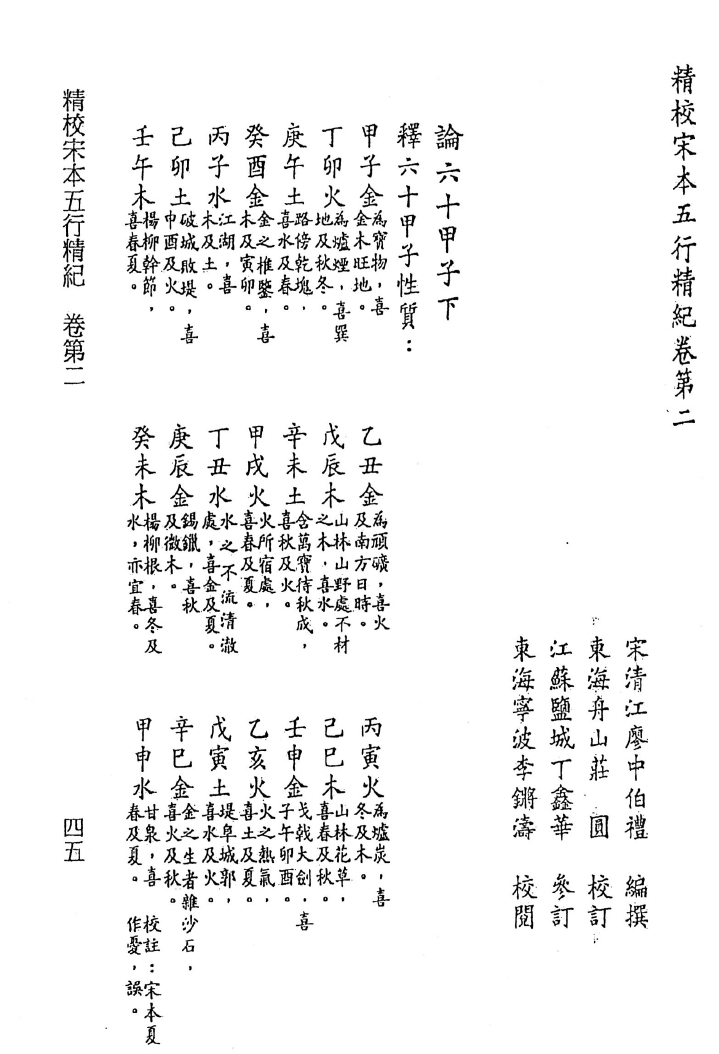 精校宋本五行精紀卷第二
宋清江廖中伯禮 編撰
東海舟山莊 圓 校訂
江蘇鹽城丁鑫華 參訂
東海寧波李鏘濤 校閱
論六十甲子下
釋六十甲子性質:
甲子金
為寶物,喜
金木旺地。
乙丑金
為頑礦,喜火
及南方日時。
丙寅火
為爐炭,喜
冬及木。
丁卯火
為爐煙,喜巽
地及秋冬。
戊辰木
山林山野處不材
之木,喜水。
己巳木
山林花草,
喜春及秋。
庚午土
路傍乾塊,
喜水及春。
辛未土
含萬寶待秋成,
喜秋及火。
壬申金
戈戟大劍,喜
子午卯酉。
癸酉金
金之椎鑿,喜
木及寅卯。
甲戌火
火所宿處,
喜春及夏。
乙亥火
火之熱氣,
喜土及夏。
丙子水
江湖,喜
木及土。
丁丑水
水之不流清澈
處,喜金及夏。
戊寅土
堤阜城郭,
喜水及火。
己卯土
破城敗堤,喜
申酉及火。
庚辰金
錫鑞,喜秋
及微木。
辛巳金
金之生者雜沙石,
喜火及秋。
壬午木
楊柳幹節,
喜春夏。
癸未木
楊柳根,喜冬及
水,亦宜春。
甲申水
甘泉,喜
春及夏。
校註:宋本夏
作憂,誤。
精校宋本五行精紀 卷第二
四五